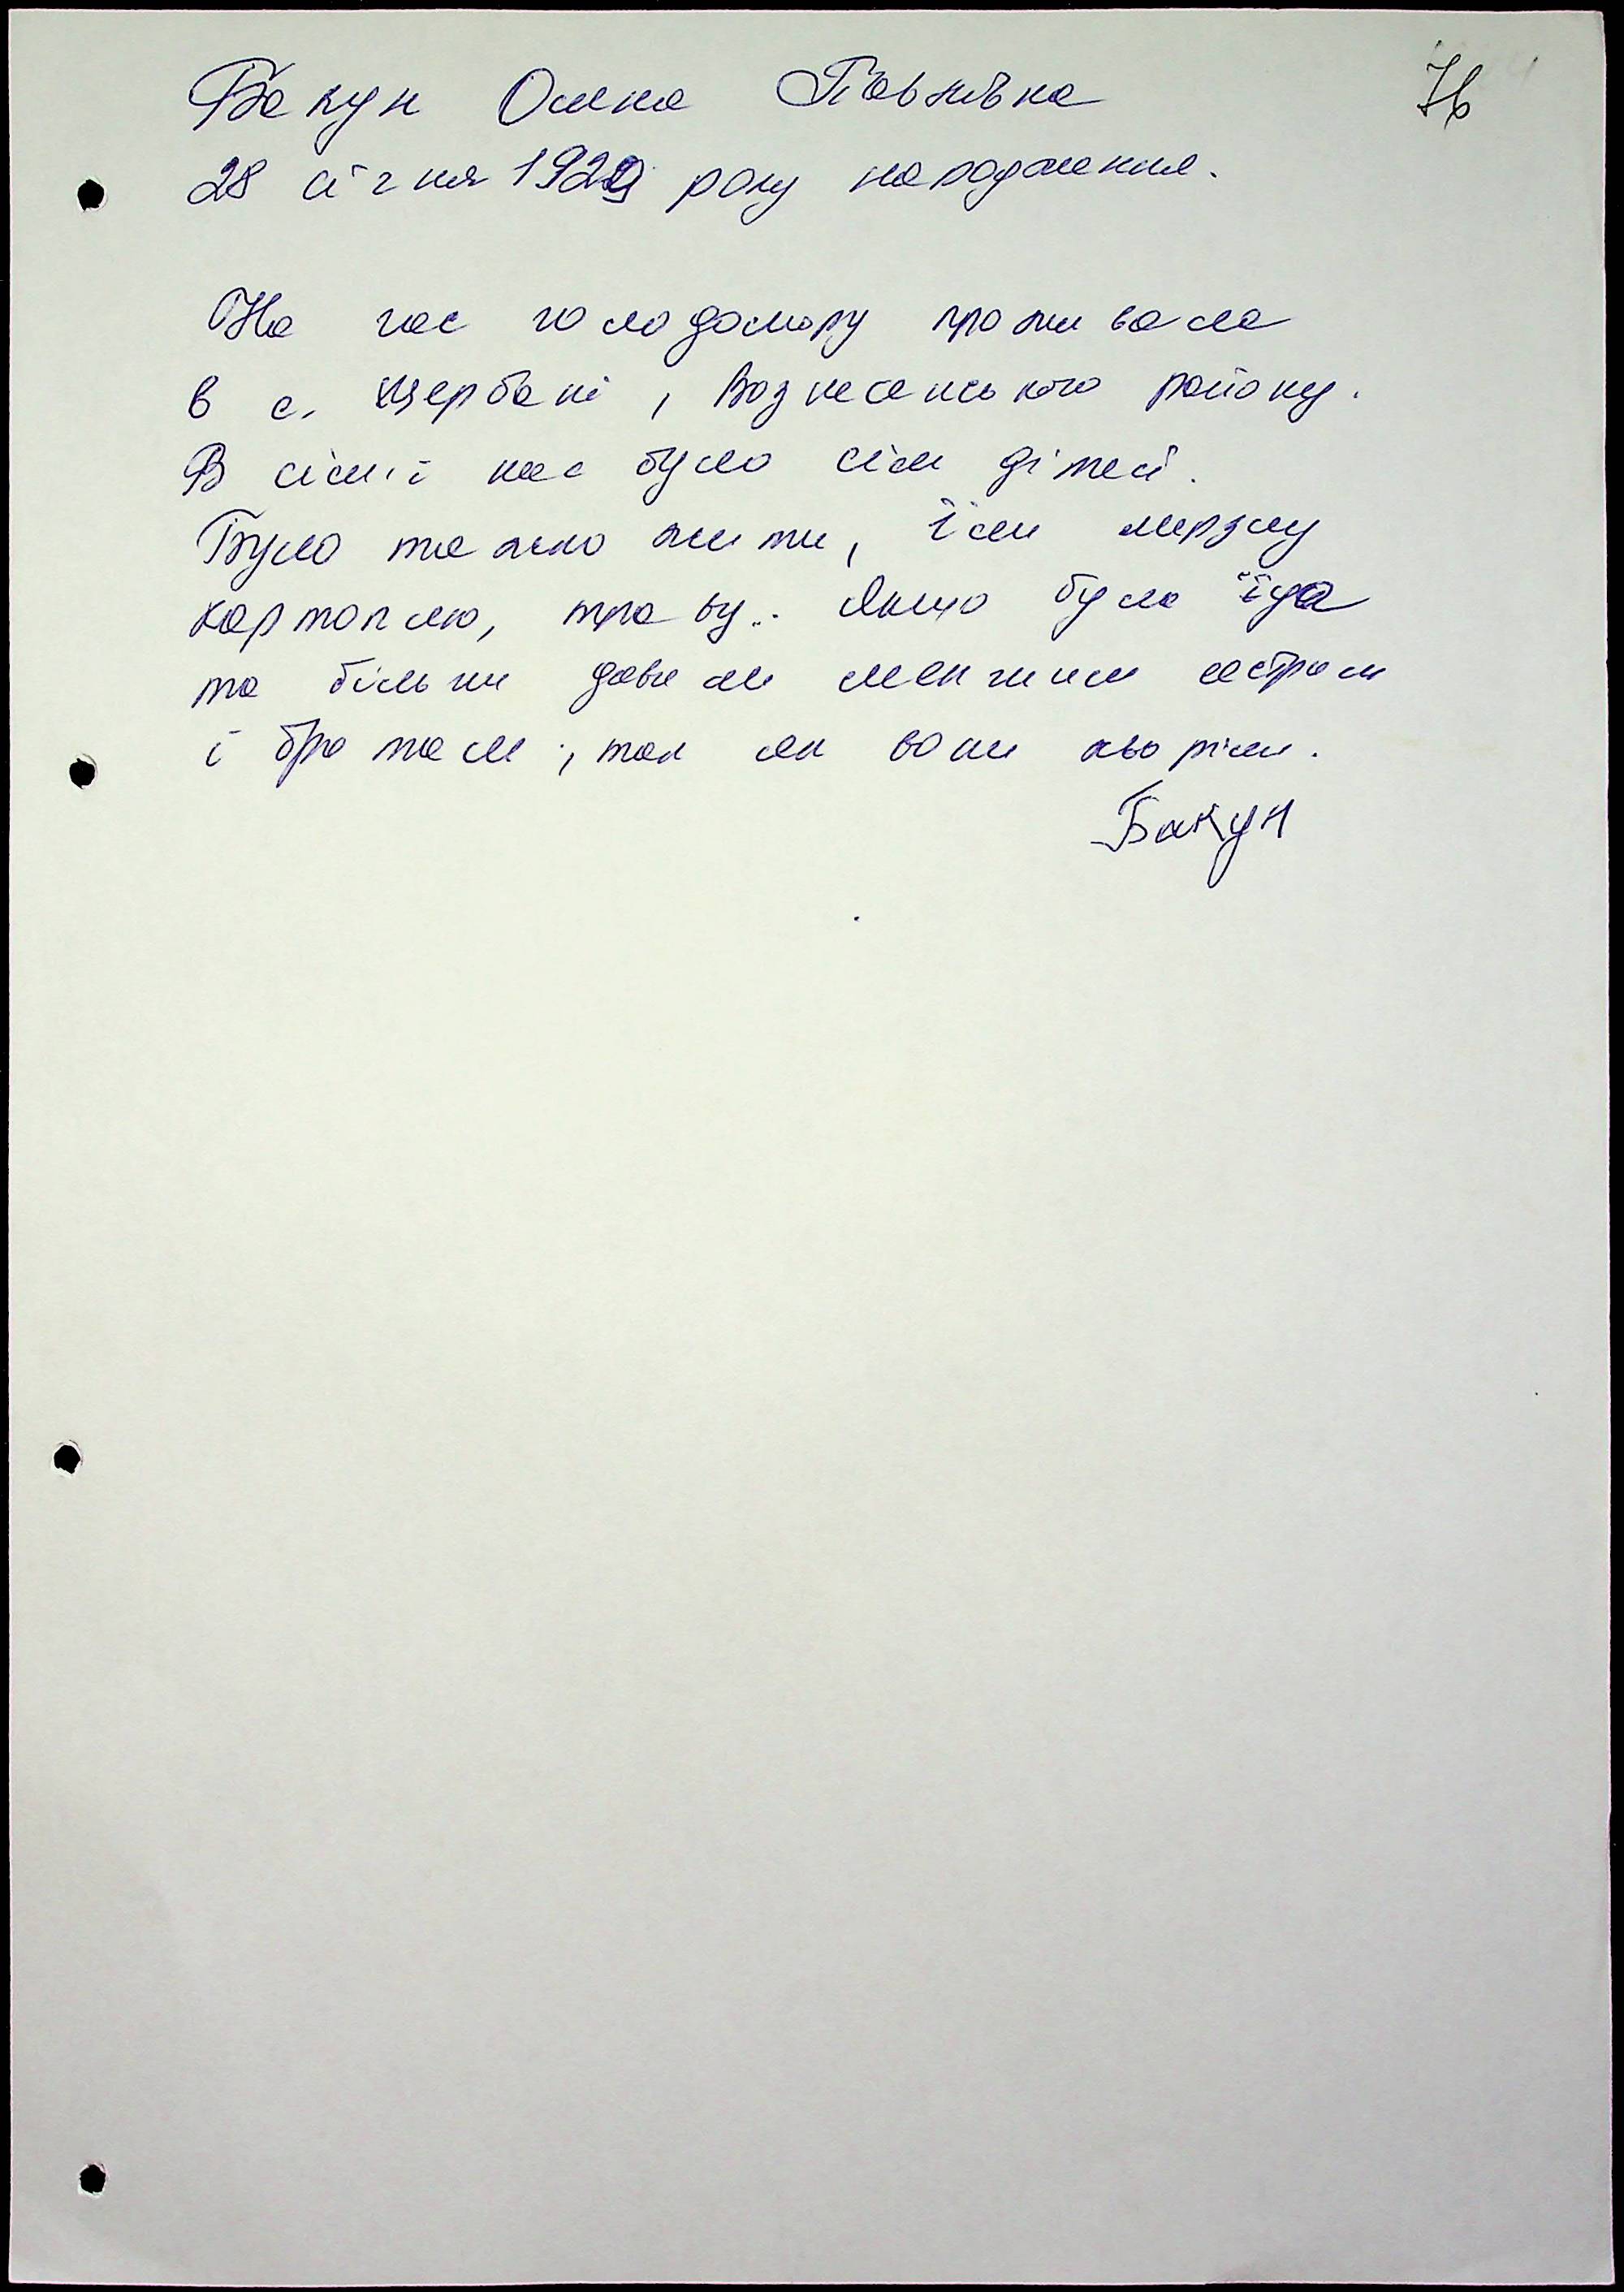 Бакун Олена Павлівна
76
28 січня 1929 року народження.
На час голодомору проживала
в с. Щербані, Вознесенського району.
В сім'ї нас було сім дітей.
Було тяжко жити, їли мерзлу
картоплю, траву... Якщо була їда
то більше давали меншим сестрам
і братам, так як вони хворіли.
Бакун